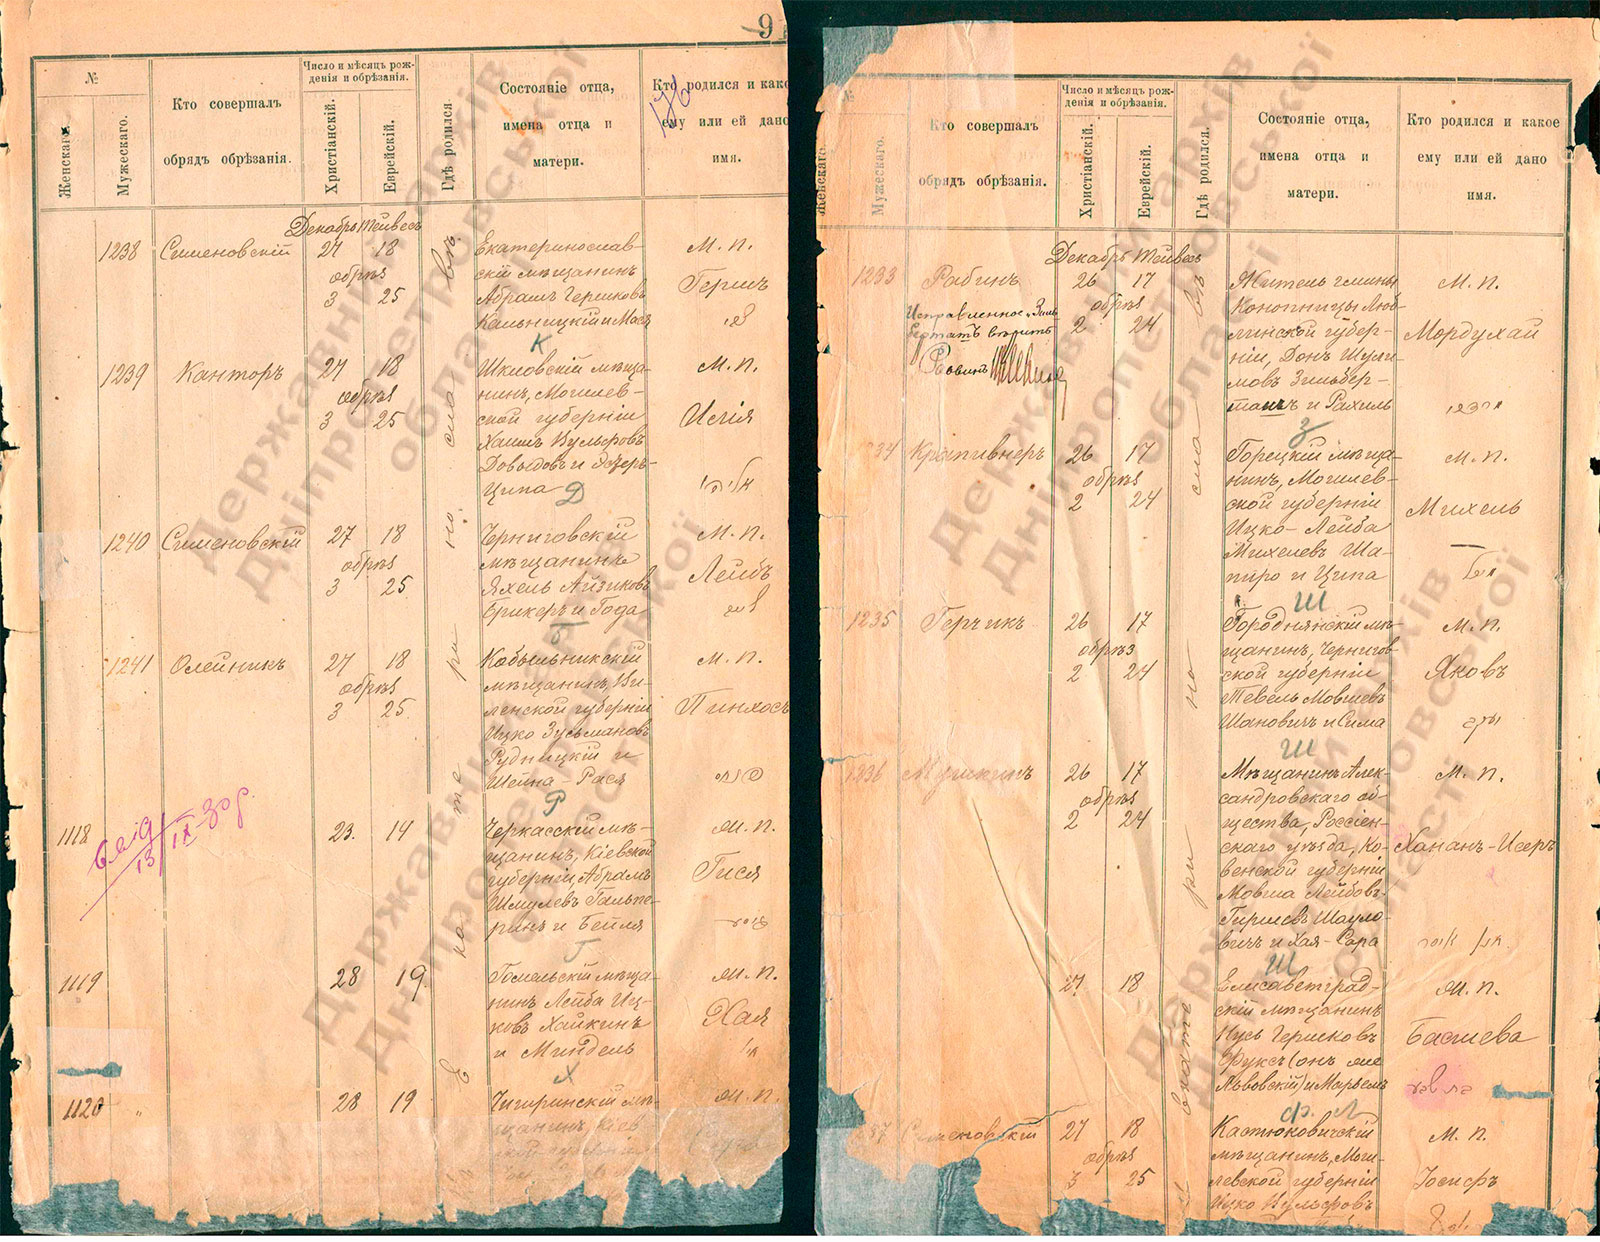 9
№
Женскаго.
Мужескаго.
Кто совершалъ
обрядъ обрѣзанія.
Число и мѣсяцъ рож-
денія и обрѣзанія.
Христіанскій.
Еврейскій.
Гдѣ родился.
Состояніе отца,
имена отца и
матери.
Кто родился и како
ему или ей дано
имя.
Декабрь Тейвесъ
1238 Сименовскій 27 18
обрѣз
3 25
Екатеринослав-
скій мѣщанинъ
Абрамъ Гершковъ
Кальницкій и Мася
К
М. п.
Гершъ
1239 Канторъ 27 18
обрѣз
3 25
Шкловскій мѣща-
нинъ, Могилев-
ской губерніи
Хаимъ Вульфовъ
Довыдовъ и Эстеръ-
Ципа Д
М. п.
Илія
1240 Сименовскій 27 18
обрѣз
3 25
Черниговскій
мѣщанинъ
Яхель Айзиковъ
Брикеръ и Года
Б
М. п.
Лейбъ
1241 Олейникъ 27 18
обрѣз
3 25
Кобыльникскій
мѣщанинъ, Ви-
ленской губерніи
Ицко Зусьмановъ
Рудницкій и
Шейна-Рася
Р
М. п.
Пинхосъ
1118 23 14
13/IX-30 р.
Черкасскій мѣ-
щанинъ, Кіевской
губерніи, Абрамъ
Шмулевъ Гальпе-
ринъ и Бейля
Г
Ж. п.
Гися
1119 28 19
Гомельскій мѣща-
нинъ Лейба Иц-
ковъ Хайкинъ
и Миндель
Х
Ж. п.
Хая
1120 „ 28 19
Чигиринскій мѣ-
щанинъ, Кіев
ской губерніи
Ж. п.
Державний архів
Дніпропетровської
області
№
Женскаго.
Мужескаго.
Кто совершалъ
обрядъ обрѣзанія.
Число и мѣсяцъ рож-
денія и обрѣзанія.
Христіанскій.
Еврейскій.
Гдѣ родился.
Состояніе отца,
имена отца и
матери.
Кто родился и какое
ему или ей дано
имя.
Декабрь Тейвесъ
1233 Рабинъ 26 17
обрѣз
2 24
Исправленное „Зиль
берштанъ“ вѣрить
Раввинъ
Житель гмины
Конопницы Люб-
линской губер-
ніи, Донъ Шули-
мовъ Зильбер-
танъ и Рахиль
З
М. п.
Мордухай
מרדכי
1234 Крапивнеръ 26 17
обрѣз
2 24
Горецкій мѣща-
нинъ, Могилев-
ской губерніи
Ицко-Лейба
Михелевъ Ша-
пиро и Ципа
Ш
М. п.
Михель
1235 Герчикъ 26 17
обрѣз
2 24
Городнянскій мѣ-
щанинъ, Чернигов-
ской губерніи
Тевель Мовшевъ
Шановичъ и Сима
Ш
М. п.
Яковъ
1236 Мушкинъ 26 17
обрѣз
2 24
Мѣщанинъ Алек-
сандровскаго об-
щества, Россіен-
скаго уѣзда, Ко-
венской губерніи
Мовша Лейбовъ-
Гиршевъ Шауло-
вичъ и Хая-Сара
Ш
М. п.
Ханан-Исеръ
27 18
Елисаветград-
скій мѣщанинъ
Нусь Гершковъ
Фуксъ (онъ же
Львовскій) и Марьемъ
Ф. Л
Ж. п.
Басшева
37 Сименовскій 27 18
обрѣз
3 25
Кастюковичскій
мѣщанинъ, Моги-
левской губерніи
Ицко Вульфовъ
М. п.
Іосифъ
въ Екатеринославѣ
Державний архів
Дніпропетровської
області